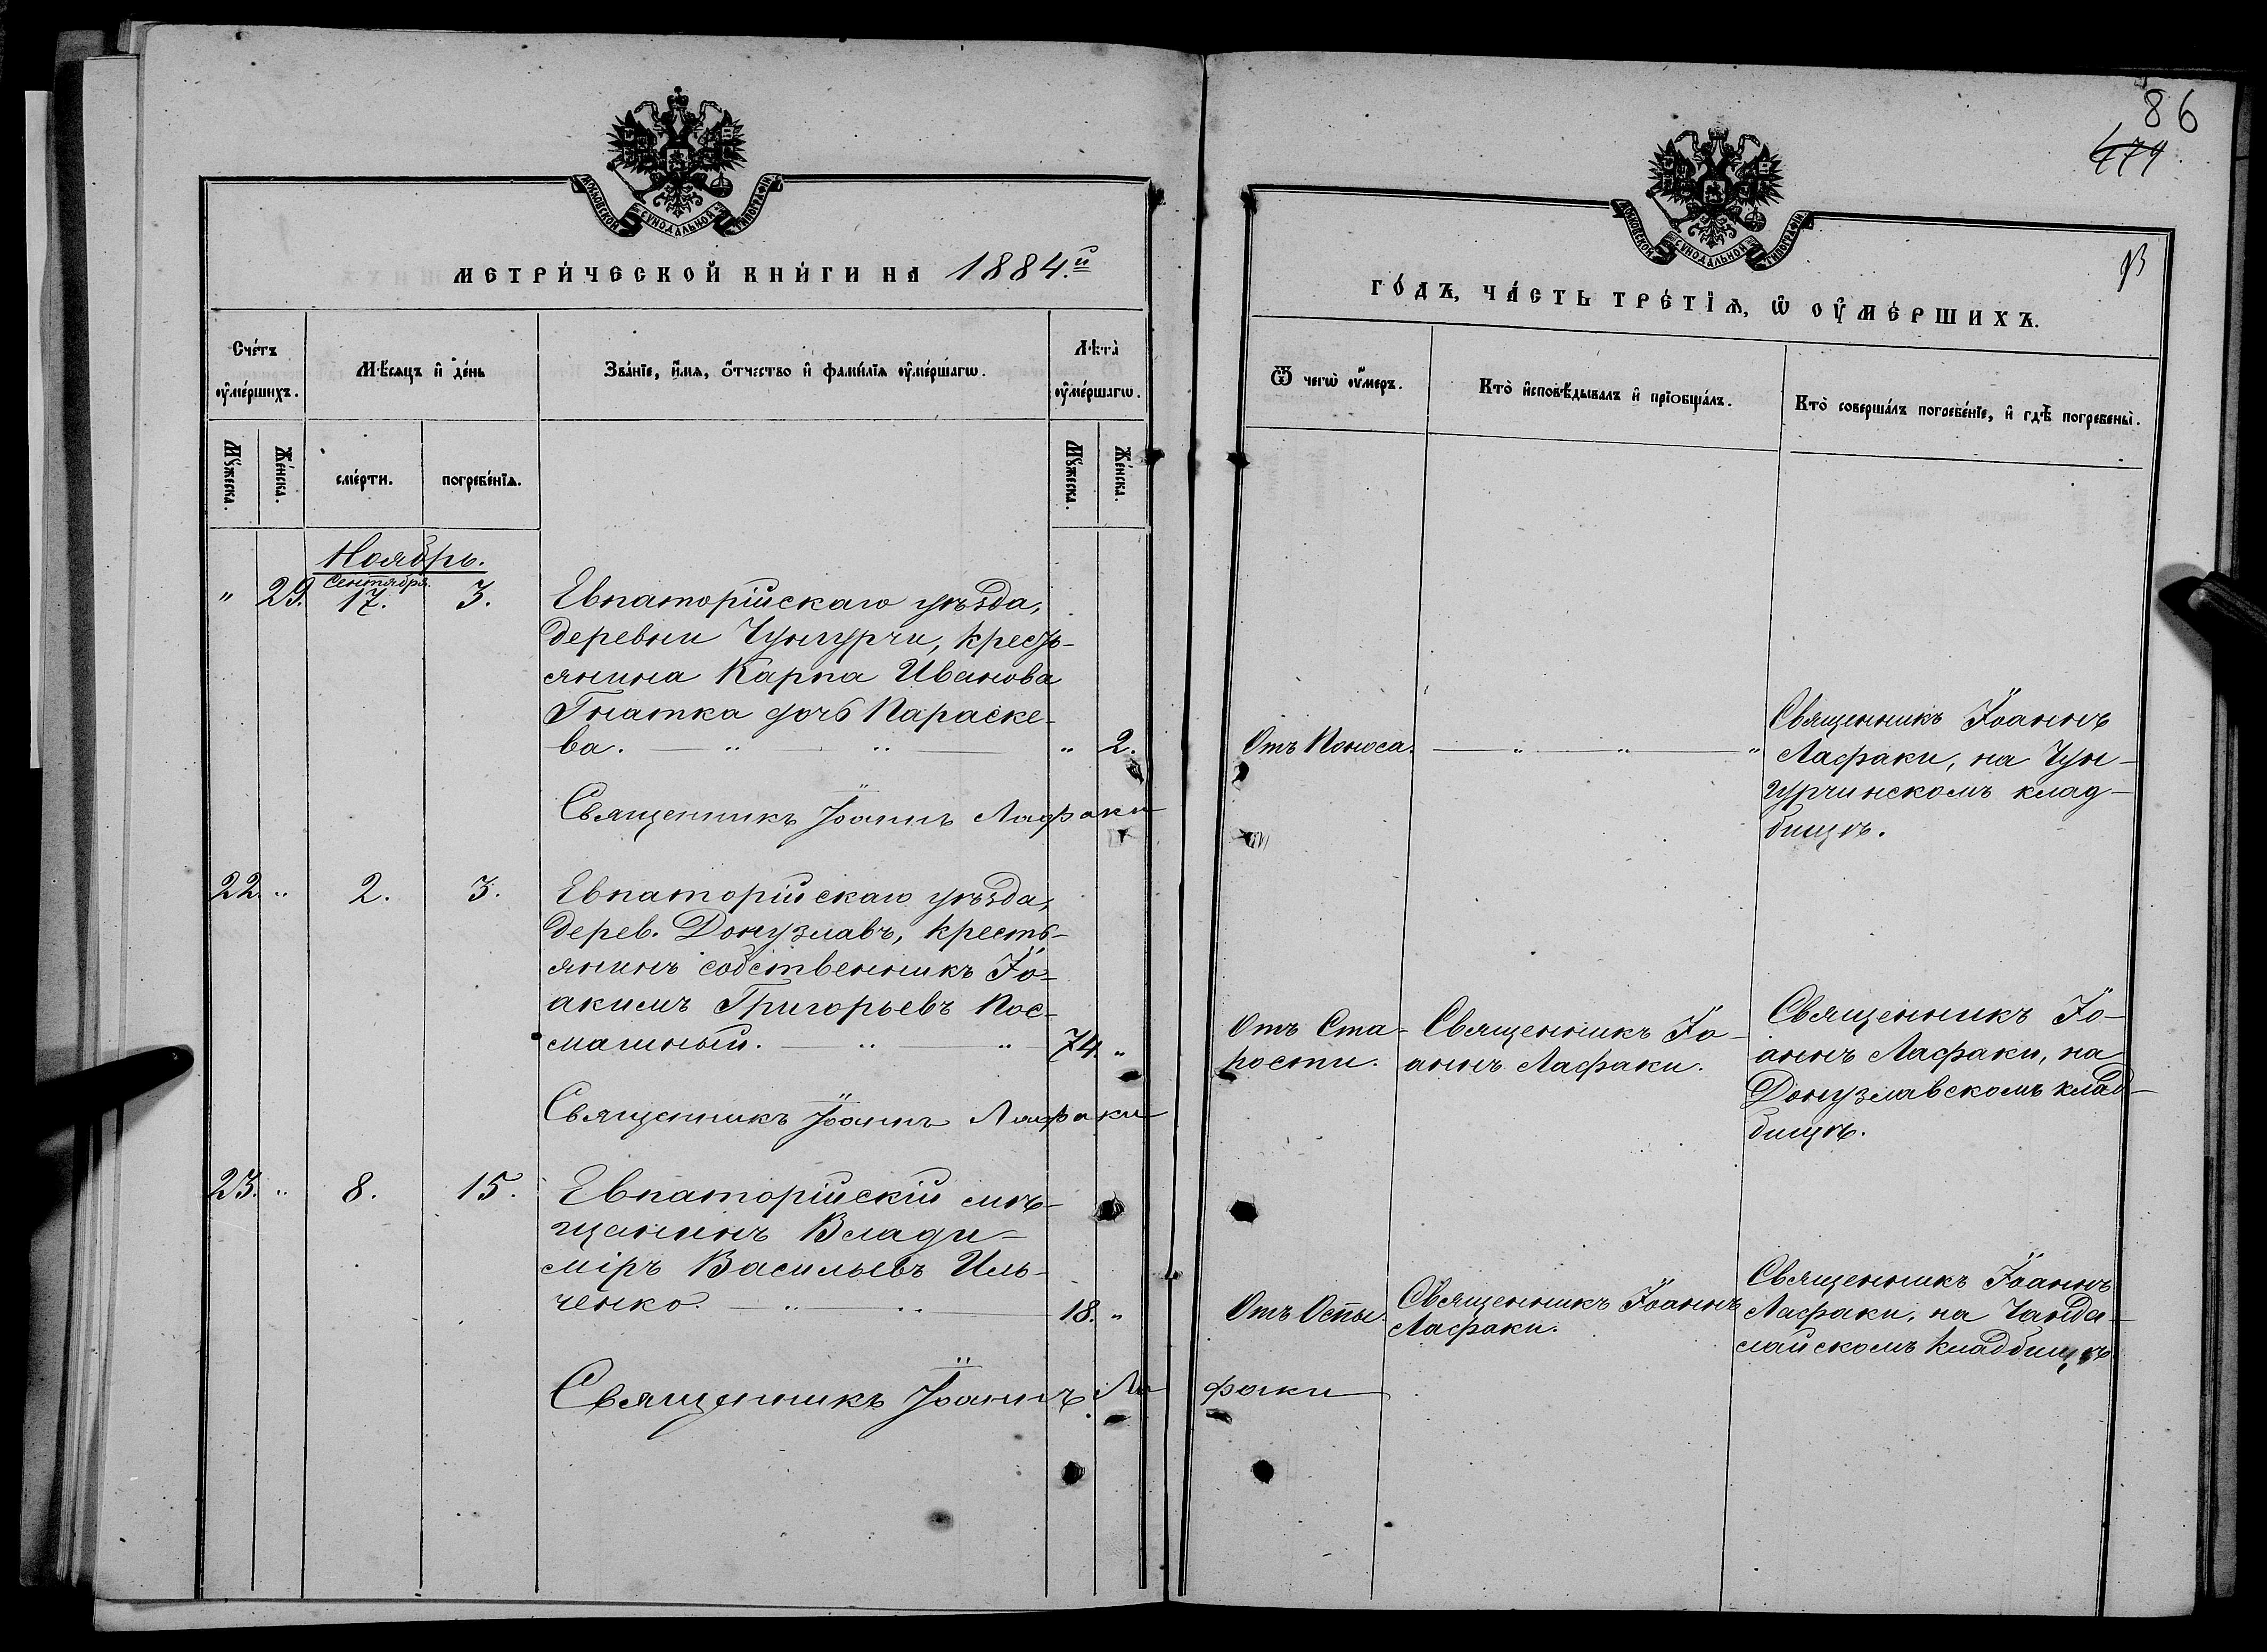 МОСКОВСКОЙ СѴНОДАЛЬНОЙ ТИПОГРАФІИ
МЕТРИ́ЧЕСКОЙ КНИ́ГИ НА 1884.й
Сче́тъ оу҆ме́ршихъ.
Мѣ́сяцъ и҆ де́нь
Зва́нїе, и҆́мѧ, ѻ҆́тчество и҆ фами́лїѧ оу҆ме́ршагѡ.
Лѣта̀ оу҆ме́ршагѡ.
Мꙋ́жеска.
Же́нска.
сме́рти.
погребе́нїѧ.
Мꙋ́жеска.
Же́нска.
Ноябрь.
Сентября.
" 29. 17. 3.
Евпаторійскаго уѣзда,
деревни Чунгурчи, кресть-
янина Карпа Иванова
Гнатка дочь Параске-
ва. — " — " — " 2.
Священникъ Іоаннъ Лафаки
22. " 2. 3.
Евпаторійскаго уѣзда,
дерев. Донузлавъ, кресть-
янинъ собственникъ Іо-
акимъ Григорьевъ Пос-
машный. — " — " — 74. "
Священникъ Іоаннъ Лафаки
23. " 8. 15.
Евпаторійскій мѣ-
щанинъ Влади-
міръ Васильевъ Иль-
ченко. — " — " — 18. "
Священникъ Іоаннъ Лафаки
86
479
МОСКОВСКОЙ СѴНОДАЛЬНОЙ ТИПОГРАФІИ
ГО́ДЪ, ЧА́СТЬ ТРЕ́ТЇѦ, Ѡ҆ ОУ҆МЕ́РШИХЪ.
Ѿ чегѡ̀ оу҆́меръ.
Кто̀ и҆сповѣ́дывалъ и҆ прїобща́лъ.
Кто̀ соверша́лъ погребе́нїе, и҆ гдѣ̀ погребены̀.
Отъ Поноса. — " — " — "
Священникъ Іоаннъ
Лафаки, на Чун-
гурчинскомъ клад-
бищѣ.
Отъ Ста-
рости.
Священникъ Іо-
аннъ Лафаки.
Священникъ Іо-
аннъ Лафаки, на
Донузлавскомъ клад-
бищѣ.
Отъ Оспы.
Священникъ Іоаннъ
Лафаки.
Священникъ Іоаннъ
Лафаки, на Чанда-
лайскомъ кладбищѣ